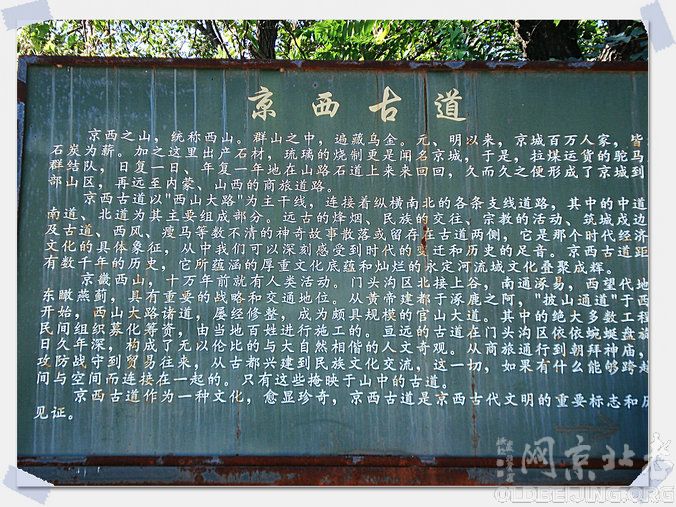 京西古道
京西之山，统称西山。群山之中，遍藏乌金。元、明以来，京城百万人家，皆
石炭为薪。加之这里出产石材，琉璃的烧制更是闻名京城，于是，拉煤运货的驼马
群结队，日复一日、年复一年地在山路石道上来来回回，久而久之便形成了京城到
部山区，再远至内蒙、山西的商旅道路。
京西古道以"西山大路"为主干线，连接着纵横南北的各条支线道路，其中的中道
南道、北道为其主要组成部分。远古的烽烟、民族的交往、宗教的活动、筑城戍边
及古道、西风、瘦马等数不清的神奇故事散落或留存在古道两侧，它是那个时代经济
文化的具体象征，从中我们可以深刻感受到时代的变迁和历史的足音。京西古道距
有数千年的历史，它所蕴涵的厚重文化底蕴和灿烂的永定河流域文化叠聚成辉。
京畿西山，十万年前就有人类活动。门头沟区北接上谷，南通涿易，西望代地
东瞰燕蓟，具有重要的战略和交通地位。从黄帝建都于涿鹿之阿，"披山通道"于西
开始，西山大路诸道，屡经修整，成为颇具规模的官山大道。其中的绝大多数工程
民间组织募化筹资，由当地百姓进行施工的。亘远的古道在门头沟区依依蜿蜒盘旋
日久年深，构成了无以伦比的与大自然相偕的人文奇观。从商旅通行到朝拜神庙，
攻防战守到贸易往来，从古都兴建到民族文化交流，这一切，如果有什么能够跨越
间与空间而连接在一起的。只有这些掩映于山中的古道。
京西古道作为一种文化，愈显珍奇，京西古道是京西古代文明的重要标志和历
见证。
老北京网
OLDBEIJING.ORG